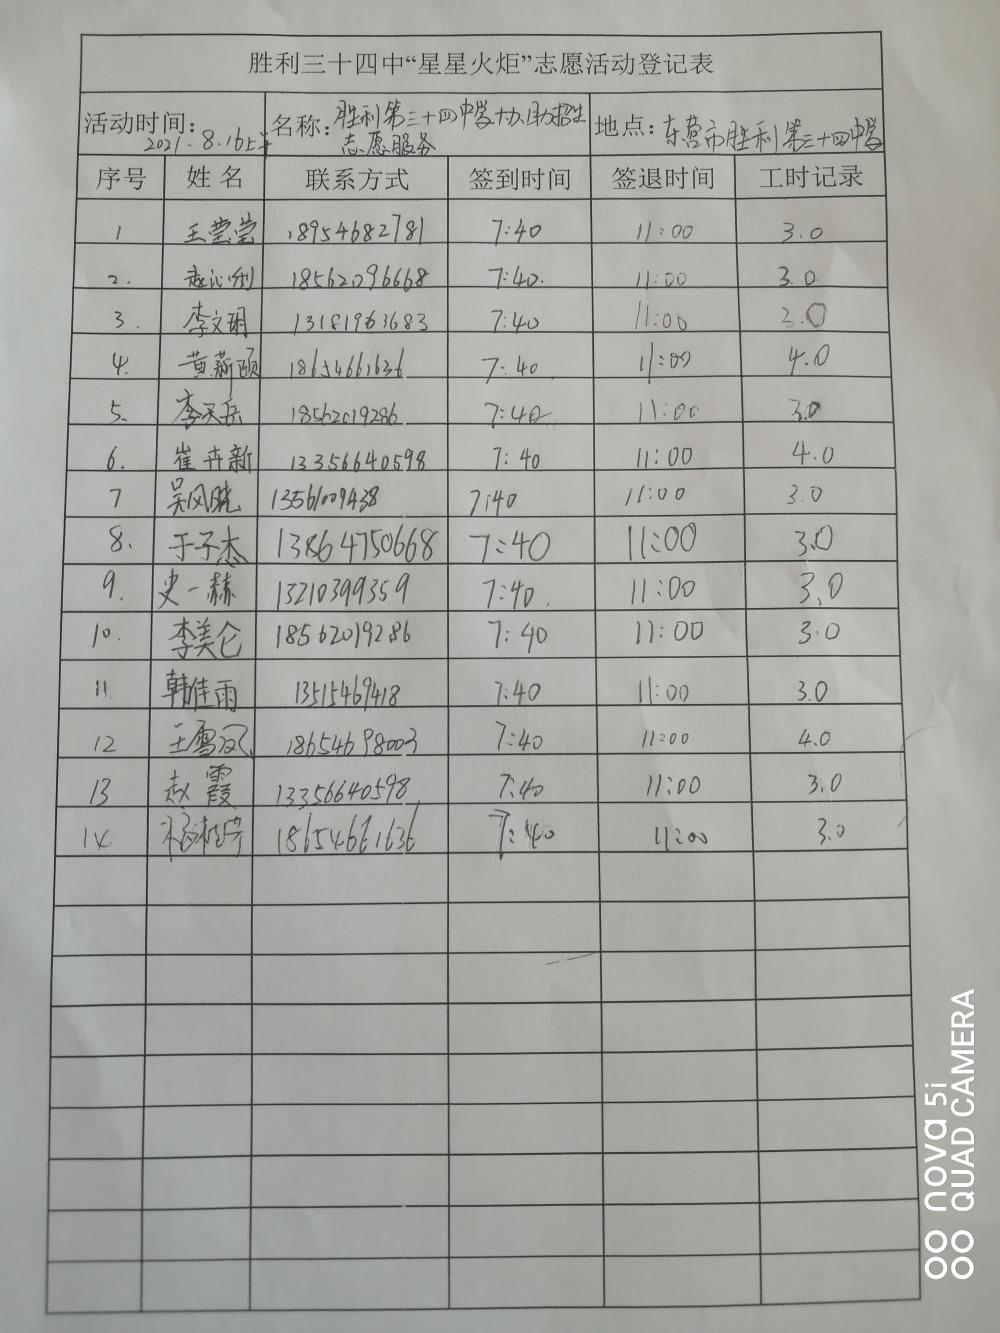 胜利三十四中“星星火炬”志愿活动登记表
活动时间: 2021.8.16上午 名称: 胜利第三十四中学协助招生 地点: 东营市胜利第三十四中学
志愿服务
序号 姓名 联系方式 签到时间 签退时间 工时记录
1 王莹莹 18954682781 7:40 11:00 3.0
2. 赵沁俐 18562096668 7:40. 11:00 3.0.
3. 李文玥 13181963683 7:40 11:00 3.0
4. 黄薪颐 18654661636 7:40 11:00 4.0
5. 李天岳 18562019286 7:40 11:00 3.0
6. 崔卉新 13356640598 7:40 11:00 4.0
7 吴风晓 13561009438 7:40 11:00 3.0
8. 于子杰 13864750668 7:40 11:00 3.0
9. 史一赫 13210399359 7:40. 11:00 3.0
10. 李美仑 18562019286 7:40 11:00 3.0
11 韩佳雨 13515469418 7:40 11:00 3.0
12 王雪 18654698003 7:40 11:00 4.0
13 赵霞 13356640598 7:40 11:00 3.0
14 18654661636 7:40 11:00 3.0
nova 5i
QUAD CAMERA